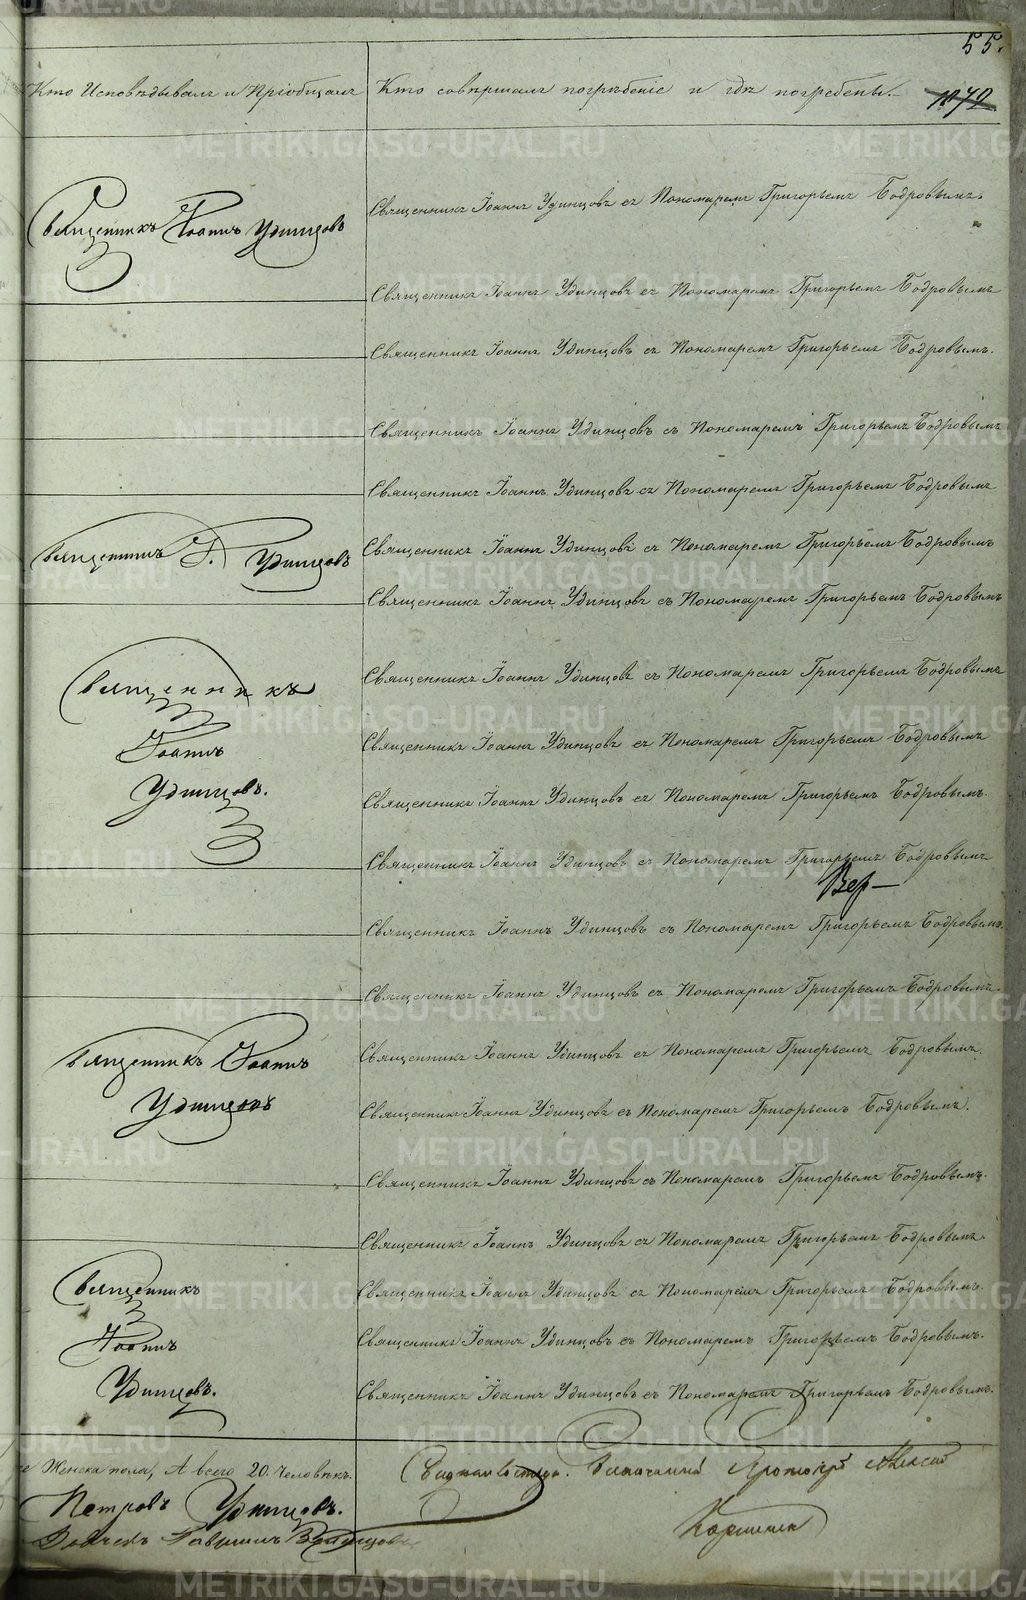 55.
Кто Исповѣдывалъ и Пріобщалъ
Кто совершалъ погребеніе и гдѣ погребены.
Священникъ Іоаннъ Удинцовъ
Священникъ Іоаннъ Удинцовъ съ Пономаремъ Григорьемъ Бодровымъ.
Священникъ Іоаннъ Удинцовъ съ Пономаремъ Григорьемъ Бодровымъ
Священникъ Іоаннъ Удинцовъ съ Пономаремъ Григорьемъ Бодровымъ.
Священникъ Іоаннъ Удинцовъ съ Пономаремъ Григорьемъ Бодровымъ
Священникъ Іоаннъ Удинцовъ съ Пономаремъ Григорьемъ Бодровымъ
Священникъ І. Удинцовъ
Священникъ Іоаннъ Удинцовъ съ Пономаремъ Григорьемъ Бодровымъ
Священникъ Іоаннъ Удинцовъ съ Пономаремъ Григорьемъ Бодровымъ
Священникъ
Іоаннъ
Удинцовъ.
Священникъ Іоаннъ Удинцовъ съ Пономаремъ Григорьемъ Бодровымъ
Священникъ Іоаннъ Удинцовъ съ Пономаремъ Григорьемъ Бодровымъ
Священникъ Іоаннъ Удинцовъ съ Пономаремъ Григорьемъ Бодровымъ.
Священникъ Іоаннъ Удинцовъ съ Пономаремъ Григорьемъ Бодровымъ
Вер—
Священникъ Іоаннъ Удинцовъ съ Пономаремъ Григорьемъ Бодровымъ.
Священникъ Іоаннъ Удинцовъ съ Пономаремъ Григорьемъ Бодровымъ.
Священникъ Іоаннъ
Удинцовъ
Священникъ Іоаннъ Удинцовъ съ Пономаремъ Григорьемъ Бодровымъ.
Священникъ Іоаннъ Удинцовъ съ Пономаремъ Григорьемъ Бодровымъ.
Священникъ Іоаннъ Удинцовъ съ Пономаремъ Григорьемъ Бодровымъ.
Священникъ Іоаннъ Удинцовъ съ Пономаремъ Григорьемъ Бодровымъ.
Священникъ
Іоаннъ
Удинцовъ.
Священникъ Іоаннъ Удинцовъ съ Пономаремъ Григорьемъ Бодровымъ.
Священникъ Іоаннъ Удинцовъ съ Пономаремъ Григорьемъ Бодровымъ.
Священникъ Іоаннъ Удинцовъ съ Пономаремъ Григорьемъ Бодровымъ.
Женска пола, А всего 20. человѣкъ.
Петровъ Удинцовъ.
METRIKI.GASO-URAL.RU